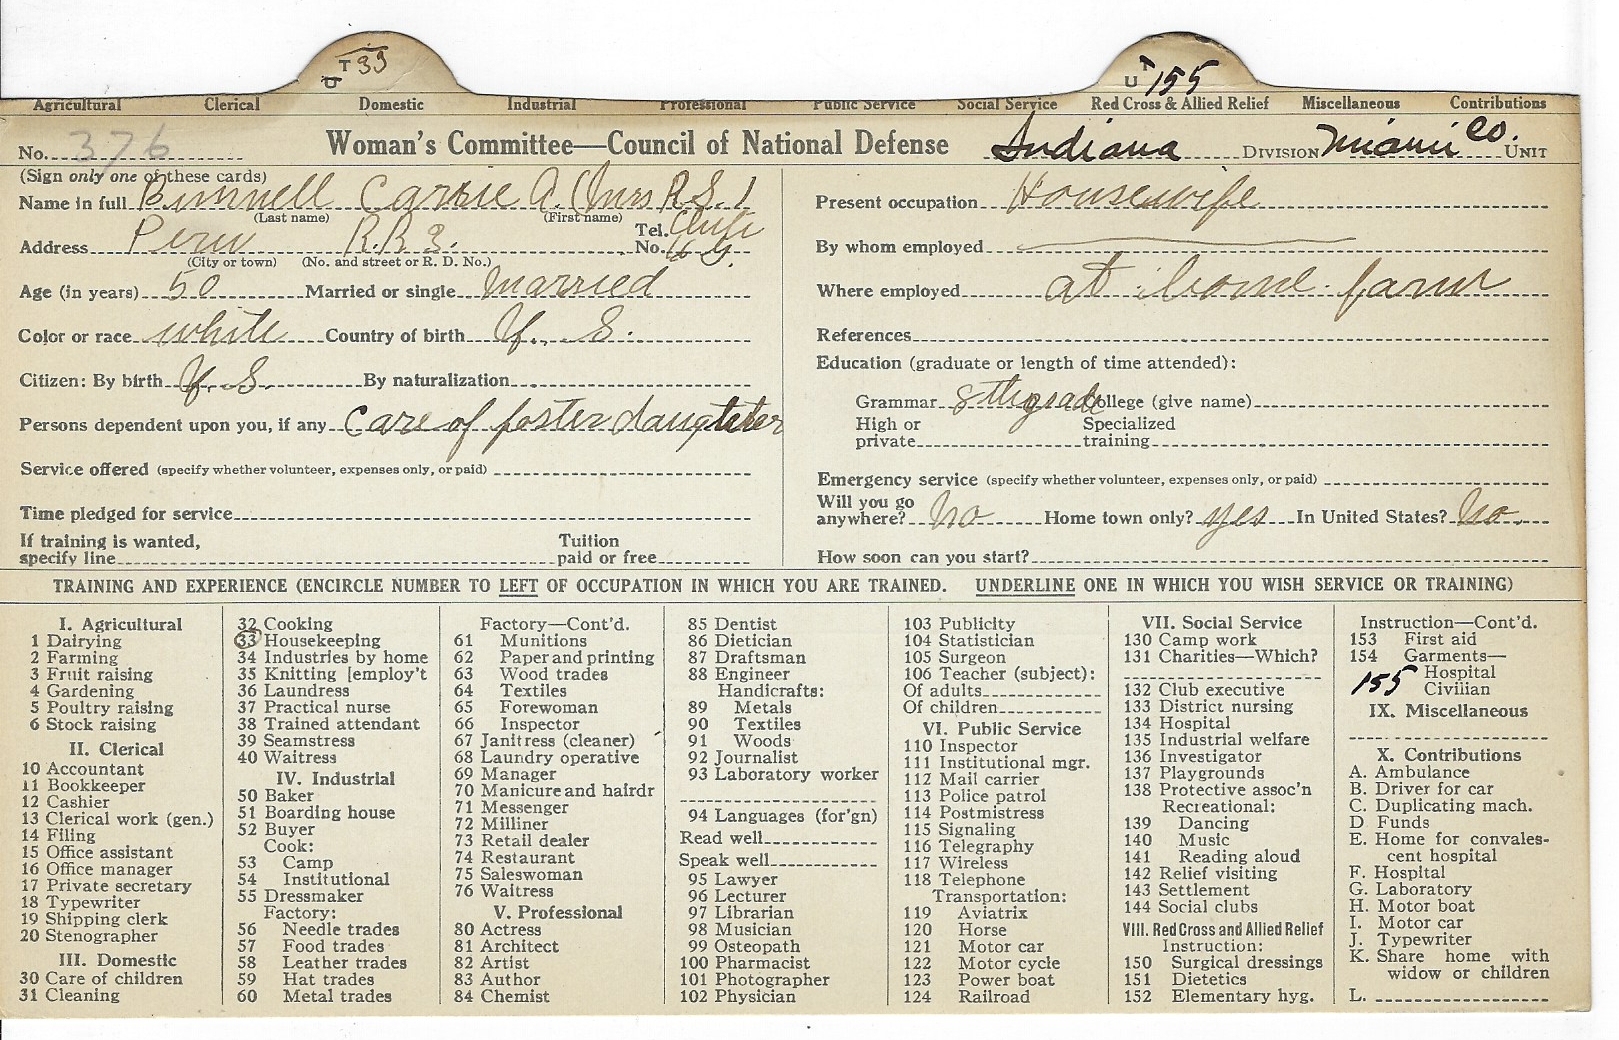 T 33
U
T
U 155
Agricultural Clerical Domestic Industrial Professional Public Service Social Service Red Cross & Allied Relief Miscellaneous Contributions
No. 376 Woman's Committee—Council of National Defense Indiana DIVISION Miami Co. UNIT
(Sign only one of these cards)
Name in full Bunnell Carrie A. (Mrs R.S.)
(Last name) (First name)
Address Peru R.R 3. Tel. No.
(City or town) (No. and street or R. D. No.)
Age (in years) 50 Married or single married
Color or race white Country of birth U. S.
Citizen: By birth U. S. By naturalization
Persons dependent upon you, if any Care of foster daughter
Service offered (specify whether volunteer, expenses only, or paid)
Time pledged for service
If training is wanted,
specify line Tuition paid or free
Present occupation Housewife
By whom employed
Where employed at home farm
References
Education (graduate or length of time attended):
Grammar 8th grade College (give name)
High or private Specialized training
Emergency service (specify whether volunteer, expenses only, or paid)
Will you go anywhere? No Home town only? yes In United States? No
How soon can you start?
TRAINING AND EXPERIENCE (ENCIRCLE NUMBER TO LEFT OF OCCUPATION IN WHICH YOU ARE TRAINED. UNDERLINE ONE IN WHICH YOU WISH SERVICE OR TRAINING)
I. Agricultural
1 Dairying
2 Farming
3 Fruit raising
4 Gardening
5 Poultry raising
6 Stock raising
II. Clerical
10 Accountant
11 Bookkeeper
12 Cashier
13 Clerical work (gen.)
14 Filing
15 Office assistant
16 Office manager
17 Private secretary
18 Typewriter
19 Shipping clerk
20 Stenographer
III. Domestic
30 Care of children
31 Cleaning
32 Cooking
33 Housekeeping
34 Industries by home
35 Knitting [employ't
36 Laundress
37 Practical nurse
38 Trained attendant
39 Seamstress
40 Waitress
IV. Industrial
50 Baker
51 Boarding house
52 Buyer
Cook:
53 Camp
54 Institutional
55 Dressmaker
Factory:
56 Needle trades
57 Food trades
58 Leather trades
59 Hat trades
60 Metal trades
Factory—Cont'd.
61 Munitions
62 Paper and printing
63 Wood trades
64 Textiles
65 Forewoman
66 Inspector
67 Janitress (cleaner)
68 Laundry operative
69 Manager
70 Manicure and hairdr
71 Messenger
72 Milliner
73 Retail dealer
74 Restaurant
75 Saleswoman
76 Waitress
V. Professional
80 Actress
81 Architect
82 Artist
83 Author
84 Chemist
85 Dentist
86 Dietician
87 Draftsman
88 Engineer
Handicrafts:
89 Metals
90 Textiles
91 Woods
92 Journalist
93 Laboratory worker
94 Languages (for'gn)
Read well
Speak well
95 Lawyer
96 Lecturer
97 Librarian
98 Musician
99 Osteopath
100 Pharmacist
101 Photographer
102 Physician
103 Publicity
104 Statistician
105 Surgeon
106 Teacher (subject):
Of adults
Of children
VI. Public Service
110 Inspector
111 Institutional mgr.
112 Mail carrier
113 Police patrol
114 Postmistress
115 Signaling
116 Telegraphy
117 Wireless
118 Telephone
Transportation:
119 Aviatrix
120 Horse
121 Motor car
122 Motor cycle
123 Power boat
124 Railroad
VII. Social Service
130 Camp work
131 Charities—Which?
132 Club executive
133 District nursing
134 Hospital
135 Industrial welfare
136 Investigator
137 Playgrounds
138 Protective assoc'n
Recreational:
139 Dancing
140 Music
141 Reading aloud
142 Relief visiting
143 Settlement
144 Social clubs
VIII. Red Cross and Allied Relief
Instruction:
150 Surgical dressings
151 Dietetics
152 Elementary hyg.
Instruction—Cont'd.
153 First aid
154 Garments—
Hospital
155 Civilian
IX. Miscellaneous
X. Contributions
A. Ambulance
B. Driver for car
C. Duplicating mach.
D Funds
E. Home for convales-
cent hospital
F. Hospital
G. Laboratory
H. Motor boat
I. Motor car
J. Typewriter
K. Share home with
widow or children
L.